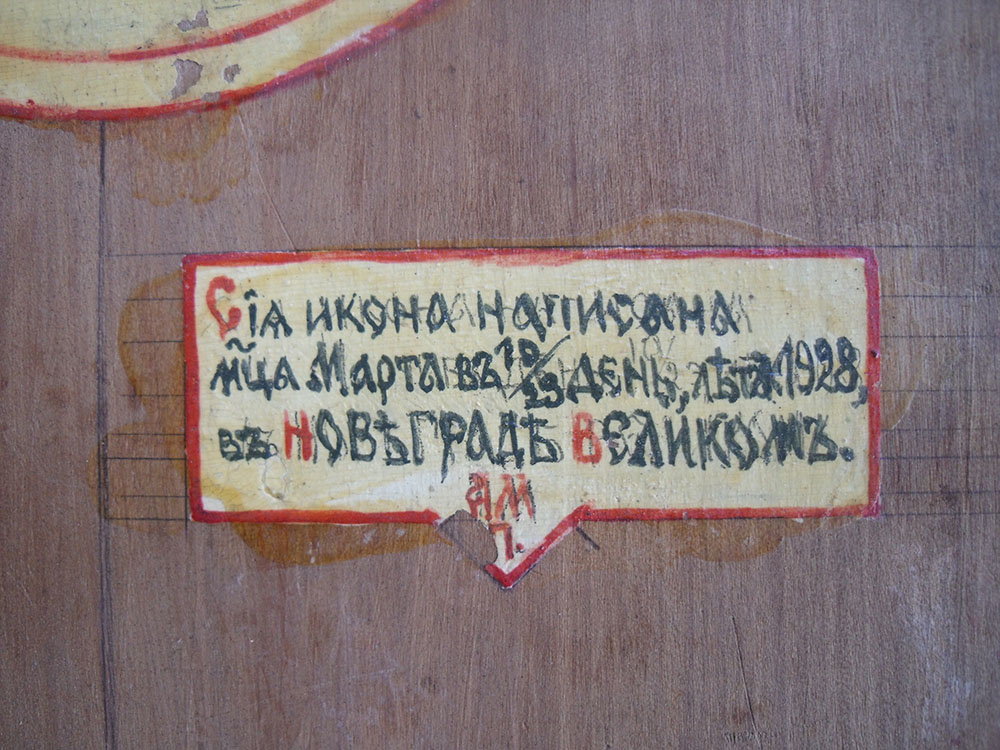 Сіѧ икона написана
м҃ца Марта въ 10/23 день, лѣта 1928,
въ Новѣградѣ Великомъ.
АМ
П.